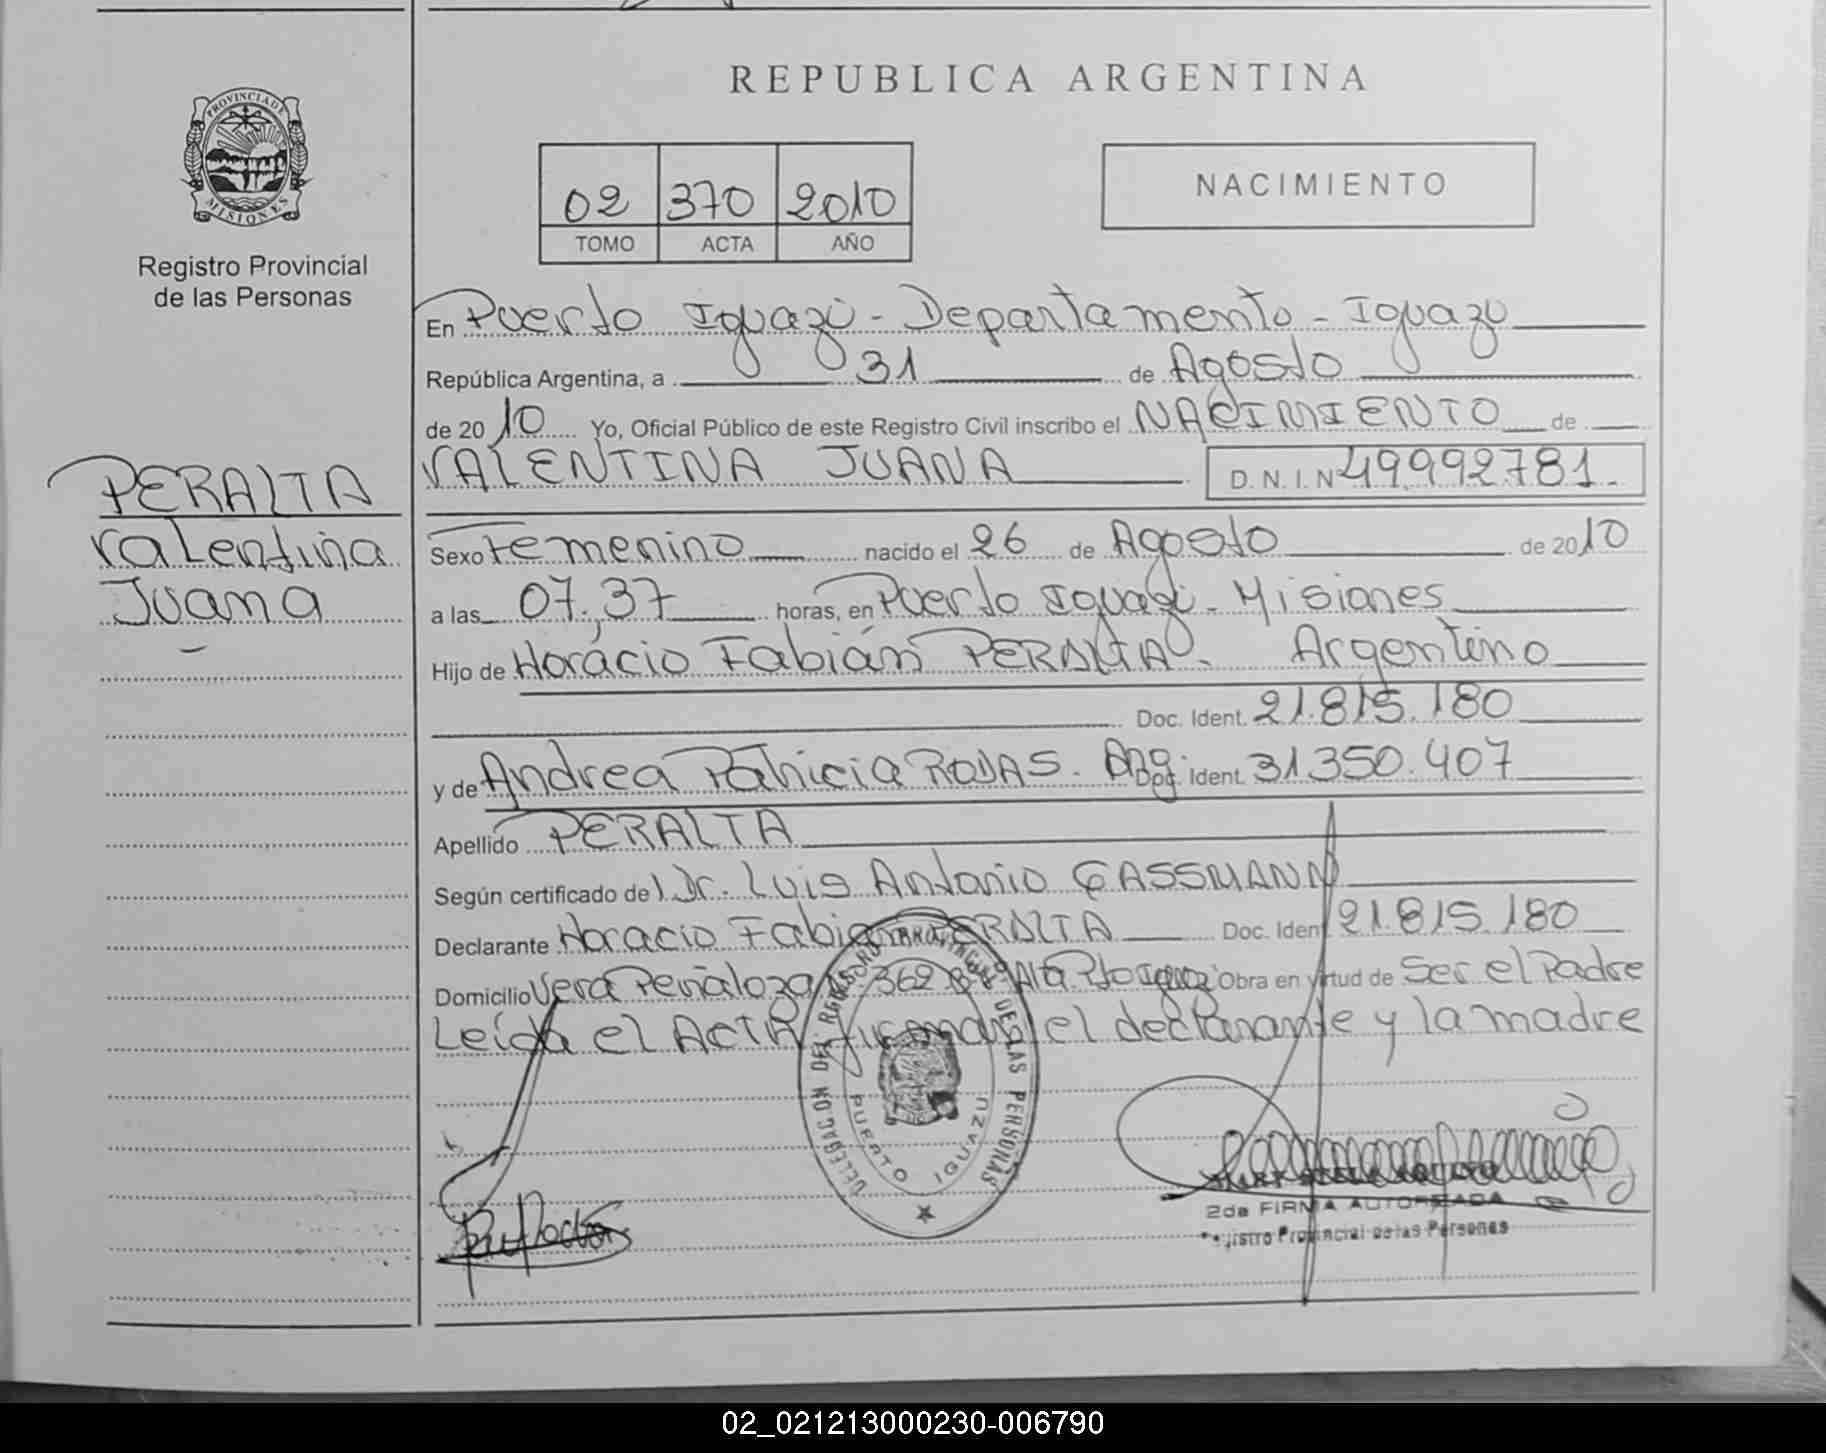 REPUBLICA ARGENTINA
PROVINCIA DE
MISIONES
Registro Provincial
de las Personas
02 370 2010
TOMO ACTA AÑO
NACIMIENTO
En Puerto Iguazú - Departamento - Iguazú
República Argentina, a 31 de Agosto
de 2010 Yo, Oficial Público de este Registro Civil inscribo el NACIMIENTO de
VALENTINA JUANA D. N. I. N 49.992.781.
PERALTA
Valentina
Juana
Sexo Femenino nacido el 26 de Agosto de 2010
a las 07.37 horas, en Puerto Iguazú - Misiones
Hijo de Horacio Fabián PERALTA. Argentino
Doc. Ident. 21.815.180
y de Andrea Patricia ROJAS. Arg. Doc. Ident. 31.350.407
Apellido PERALTA
Según certificado de Dr. Luis Antonio GASSMANN
Declarante Horacio Fabian PERALTA Doc. Ident 21.815.180
Domicilio Vera Peñaloza 362 Obra en virtud de Ser el Padre
Leída el ACTA firmando el declarante y la madre
DELEGACION DEL REGISTRO PROVINCIAL DE LAS PERSONAS
PUERTO IGUAZU
2da FIRMA AUTORIZADA
Registro Provincial de las Personas
02_021213000230-006790